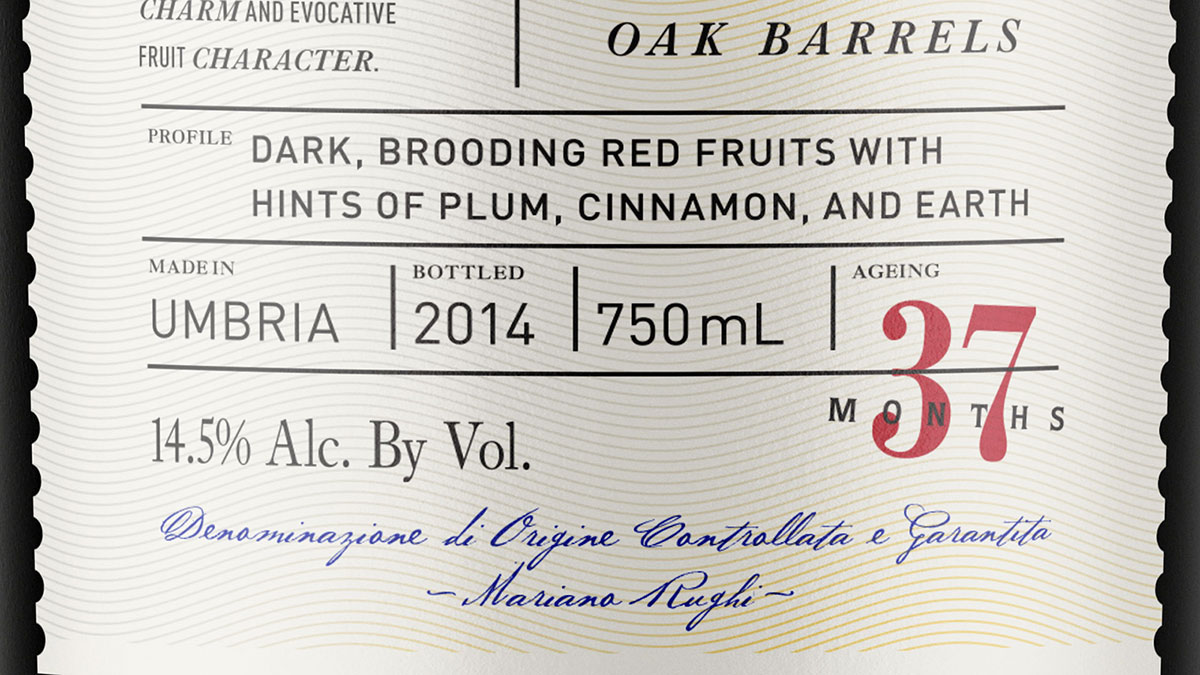 CHARM AND EVOCATIVE
FRUIT CHARACTER.
OAK BARRELS
PROFILE DARK, BROODING RED FRUITS WITH
HINTS OF PLUM, CINNAMON, AND EARTH
MADE IN
UMBRIA
BOTTLED
2014
750mL
AGEING
37
MONTHS
14.5% Alc. By Vol.
Denominazione di Origine Controllata e Garantita
~Mariano Rughi~